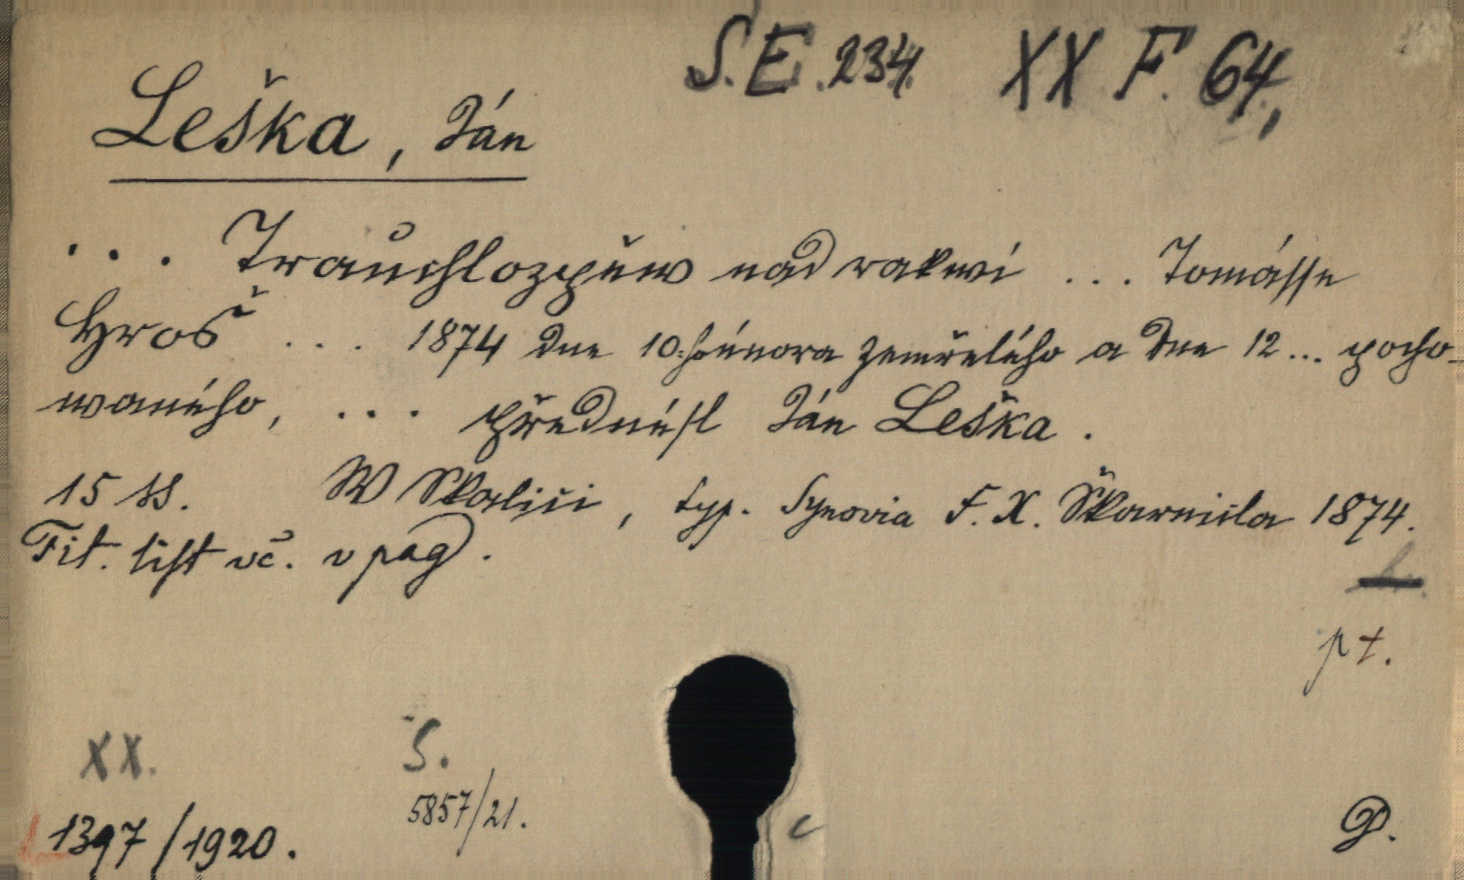 S.E. 234. XX F. 64,
Leška, Ján
... Trauchlozpěw nad rakwí ... Tomásse
Hroš ... 1874 dne 10. února zemřelého a dne 12 ... pocho-
waného, ... přednésl Ján Leška.
15 ss. W Skalici, typ. Synovia F. X. Škarnicla 1874.
Tit. list vč. v pag.
pt.
XX. S.
5857/21.
1397/1920. c D.